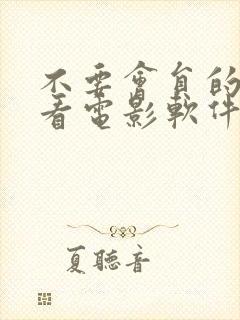 不要會員的
看電影軟件
夏聽音